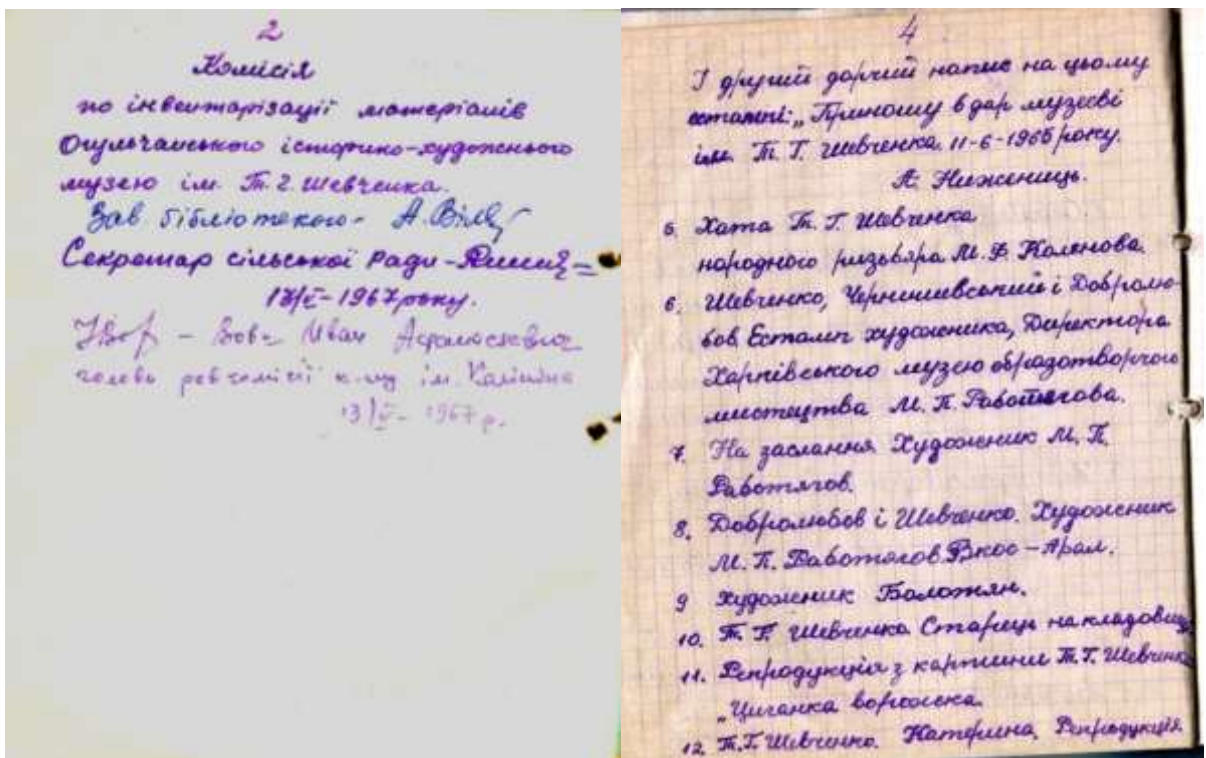 2
Комісія
по інвентаризації матеріалів
Огульчанського історико-художнього
музею ім. Т. Г. Шевченка.
Зав бібліотекою - А.
Секретар сільської Ради -
13/V - 1967 року.
Вовк Иван
голова ревкомісії к-пу ім. Калініна
13/V - 1967 р.
4
І другий дарчий напис на цьому
естампі: „Приношу в дар музеєві
ім. Т. Г. Шевченка 11-6-1965 року.
А. Ниженець.
5. Хата Т. Г. Шевченка
народного різьбяра М. Ф.
6. Шевченко, Чернишевський і Добролю-
бов Естамп художника, Директора
Харківського музею образотворчого
мистецтва М. П. Работягова.
7. На заслання Художник М. П.
Работягов.
8. Добролюбов і Шевченко. Художник
М. П. Работягов. Вкос - Арал.
9 Художник Болотян.
10. Т. Г. Шевченка Старець на кладовищ
11. Репродукція з картини Т. Г. Шевченка
„Циганка ворожка.
12. Т. Г. Шевченко. Катерина. Репродукція